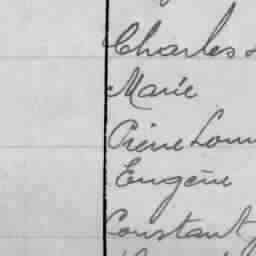 Charles
Marie
Pierre Loui
Eugène
Constant